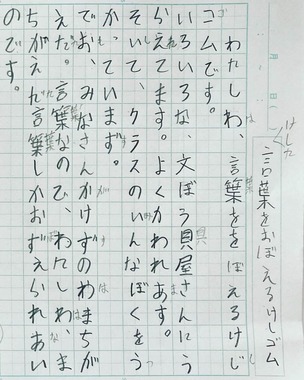 月 日( )
言葉をおぼえるけしゴム
わたしわ、言葉をを ぼえるけじ
ゴムです。
いろいろな、文ぼう具屋さんにう
られてます。よくかわれあす。
そして、クラスのいんなぼくをう
かっています。
でお、みなさんかけずのわまちが
えた。言葉なのひ、わたしわ、ま
ちがえた言葉しかおずえられあい
のです。